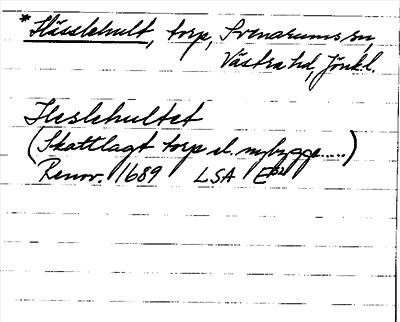 *Hässlehult, torp, Svenarums sn,
Västra hd, Jönk.l.
Heslehultet
(Skattlagt torp el. nybygge.....)
Renov. 1689 LSA E